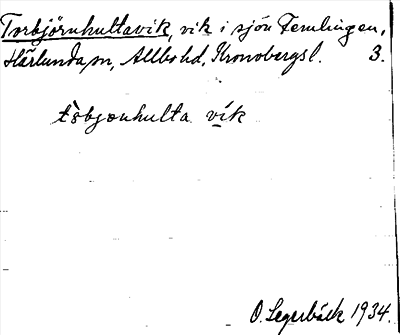 Torbjörnhultavik, vik i sjön Femlingen,
Härlunda sn, Allbo hd, Kronobergs l. 3.
tòbjœnhulta vík
O. Legerbäck 1934.